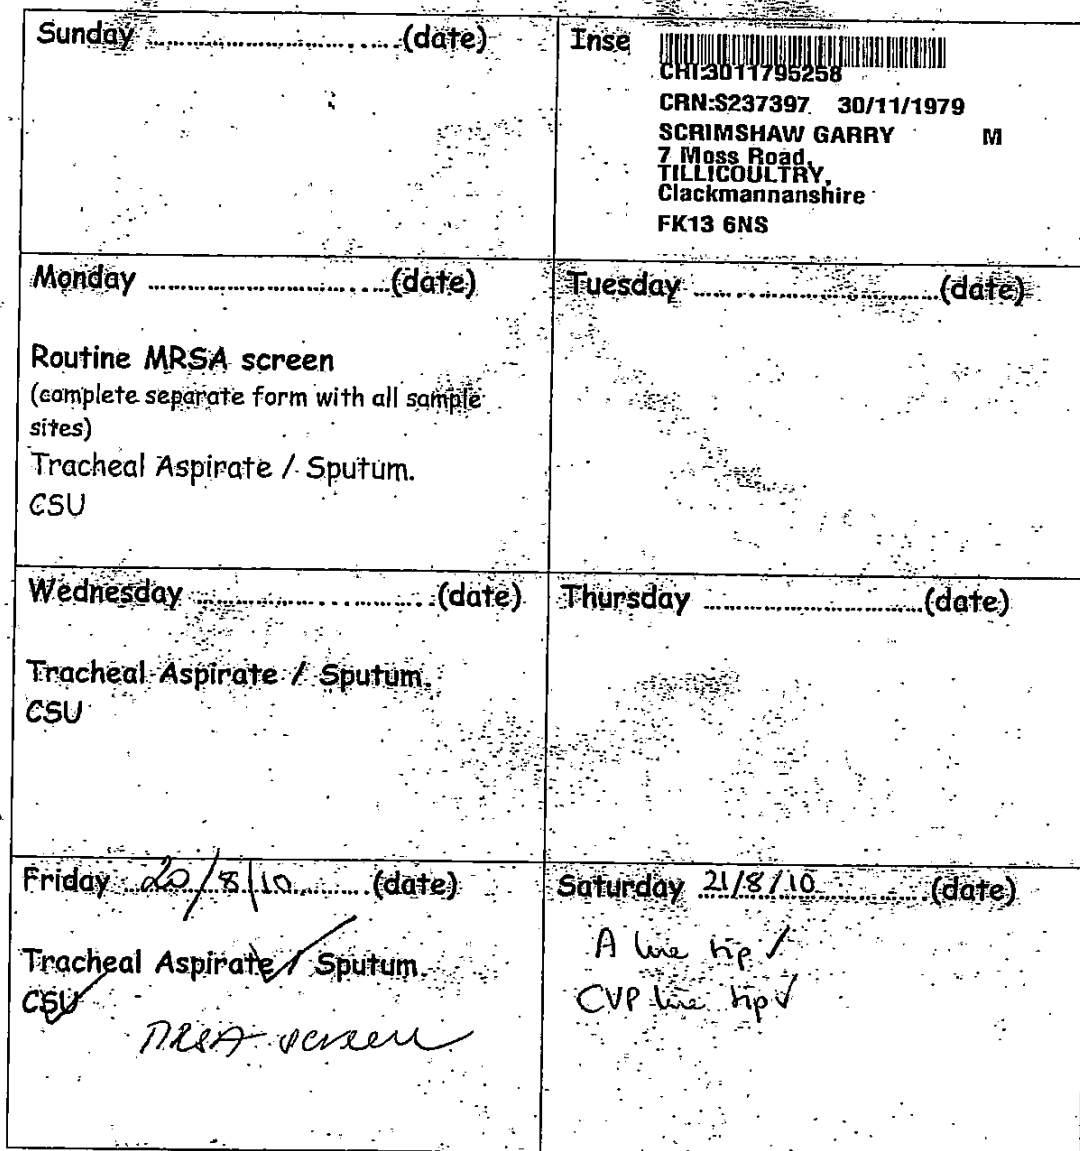 Sunday ..................................(date)
Inse
CHI:3011795258
CRN:S237397 30/11/1979
SCRIMSHAW GARRY M
7 Moss Road,
TILLICOULTRY,
Clackmannanshire
FK13 6NS
Monday ..................................(date)
Routine MRSA screen
(complete separate form with all sample
sites)
Tracheal Aspirate / Sputum.
CSU
Tuesday ..................................(date)
Wednesday ..................................(date)
Tracheal Aspirate / Sputum.
CSU
Thursday ..................................(date)
Friday 20/8/10 (date)
Tracheal Aspirate / Sputum.
CSU
MRSA screen
Saturday 21/8/10 (date)
A line tip ✓
CVP line tip ✓